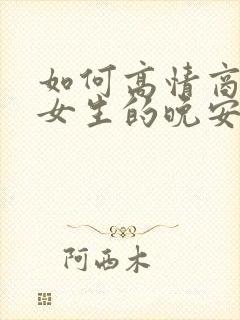 如何高情商
女生的晚安
阿西木